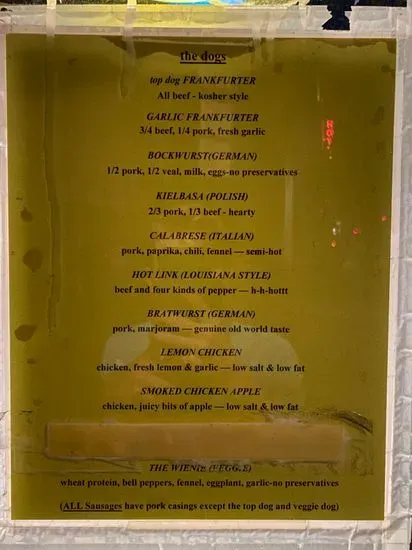 the dogs
top dog FRANKFURTER
All beef - kosher style
GARLIC FRANKFURTER
3/4 beef, 1/4 pork, fresh garlic
BOCKWURST(GERMAN)
1/2 pork, 1/2 veal, milk, eggs-no preservatives
KIELBASA (POLISH)
2/3 pork, 1/3 beef - hearty
CALABRESE (ITALIAN)
pork, paprika, chili, fennel — semi-hot
HOT LINK (LOUISIANA STYLE)
beef and four kinds of pepper — h-h-hottt
BRATWURST (GERMAN)
pork, marjoram — genuine old world taste
LEMON CHICKEN
chicken, fresh lemon & garlic — low salt & low fat
SMOKED CHICKEN APPLE
chicken, juicy bits of apple — low salt & low fat
THE WIENIE (VEGGIE)
wheat protein, bell peppers, fennel, eggplant, garlic-no preservatives
(ALL Sausages have pork casings except the top dog and veggie dog)